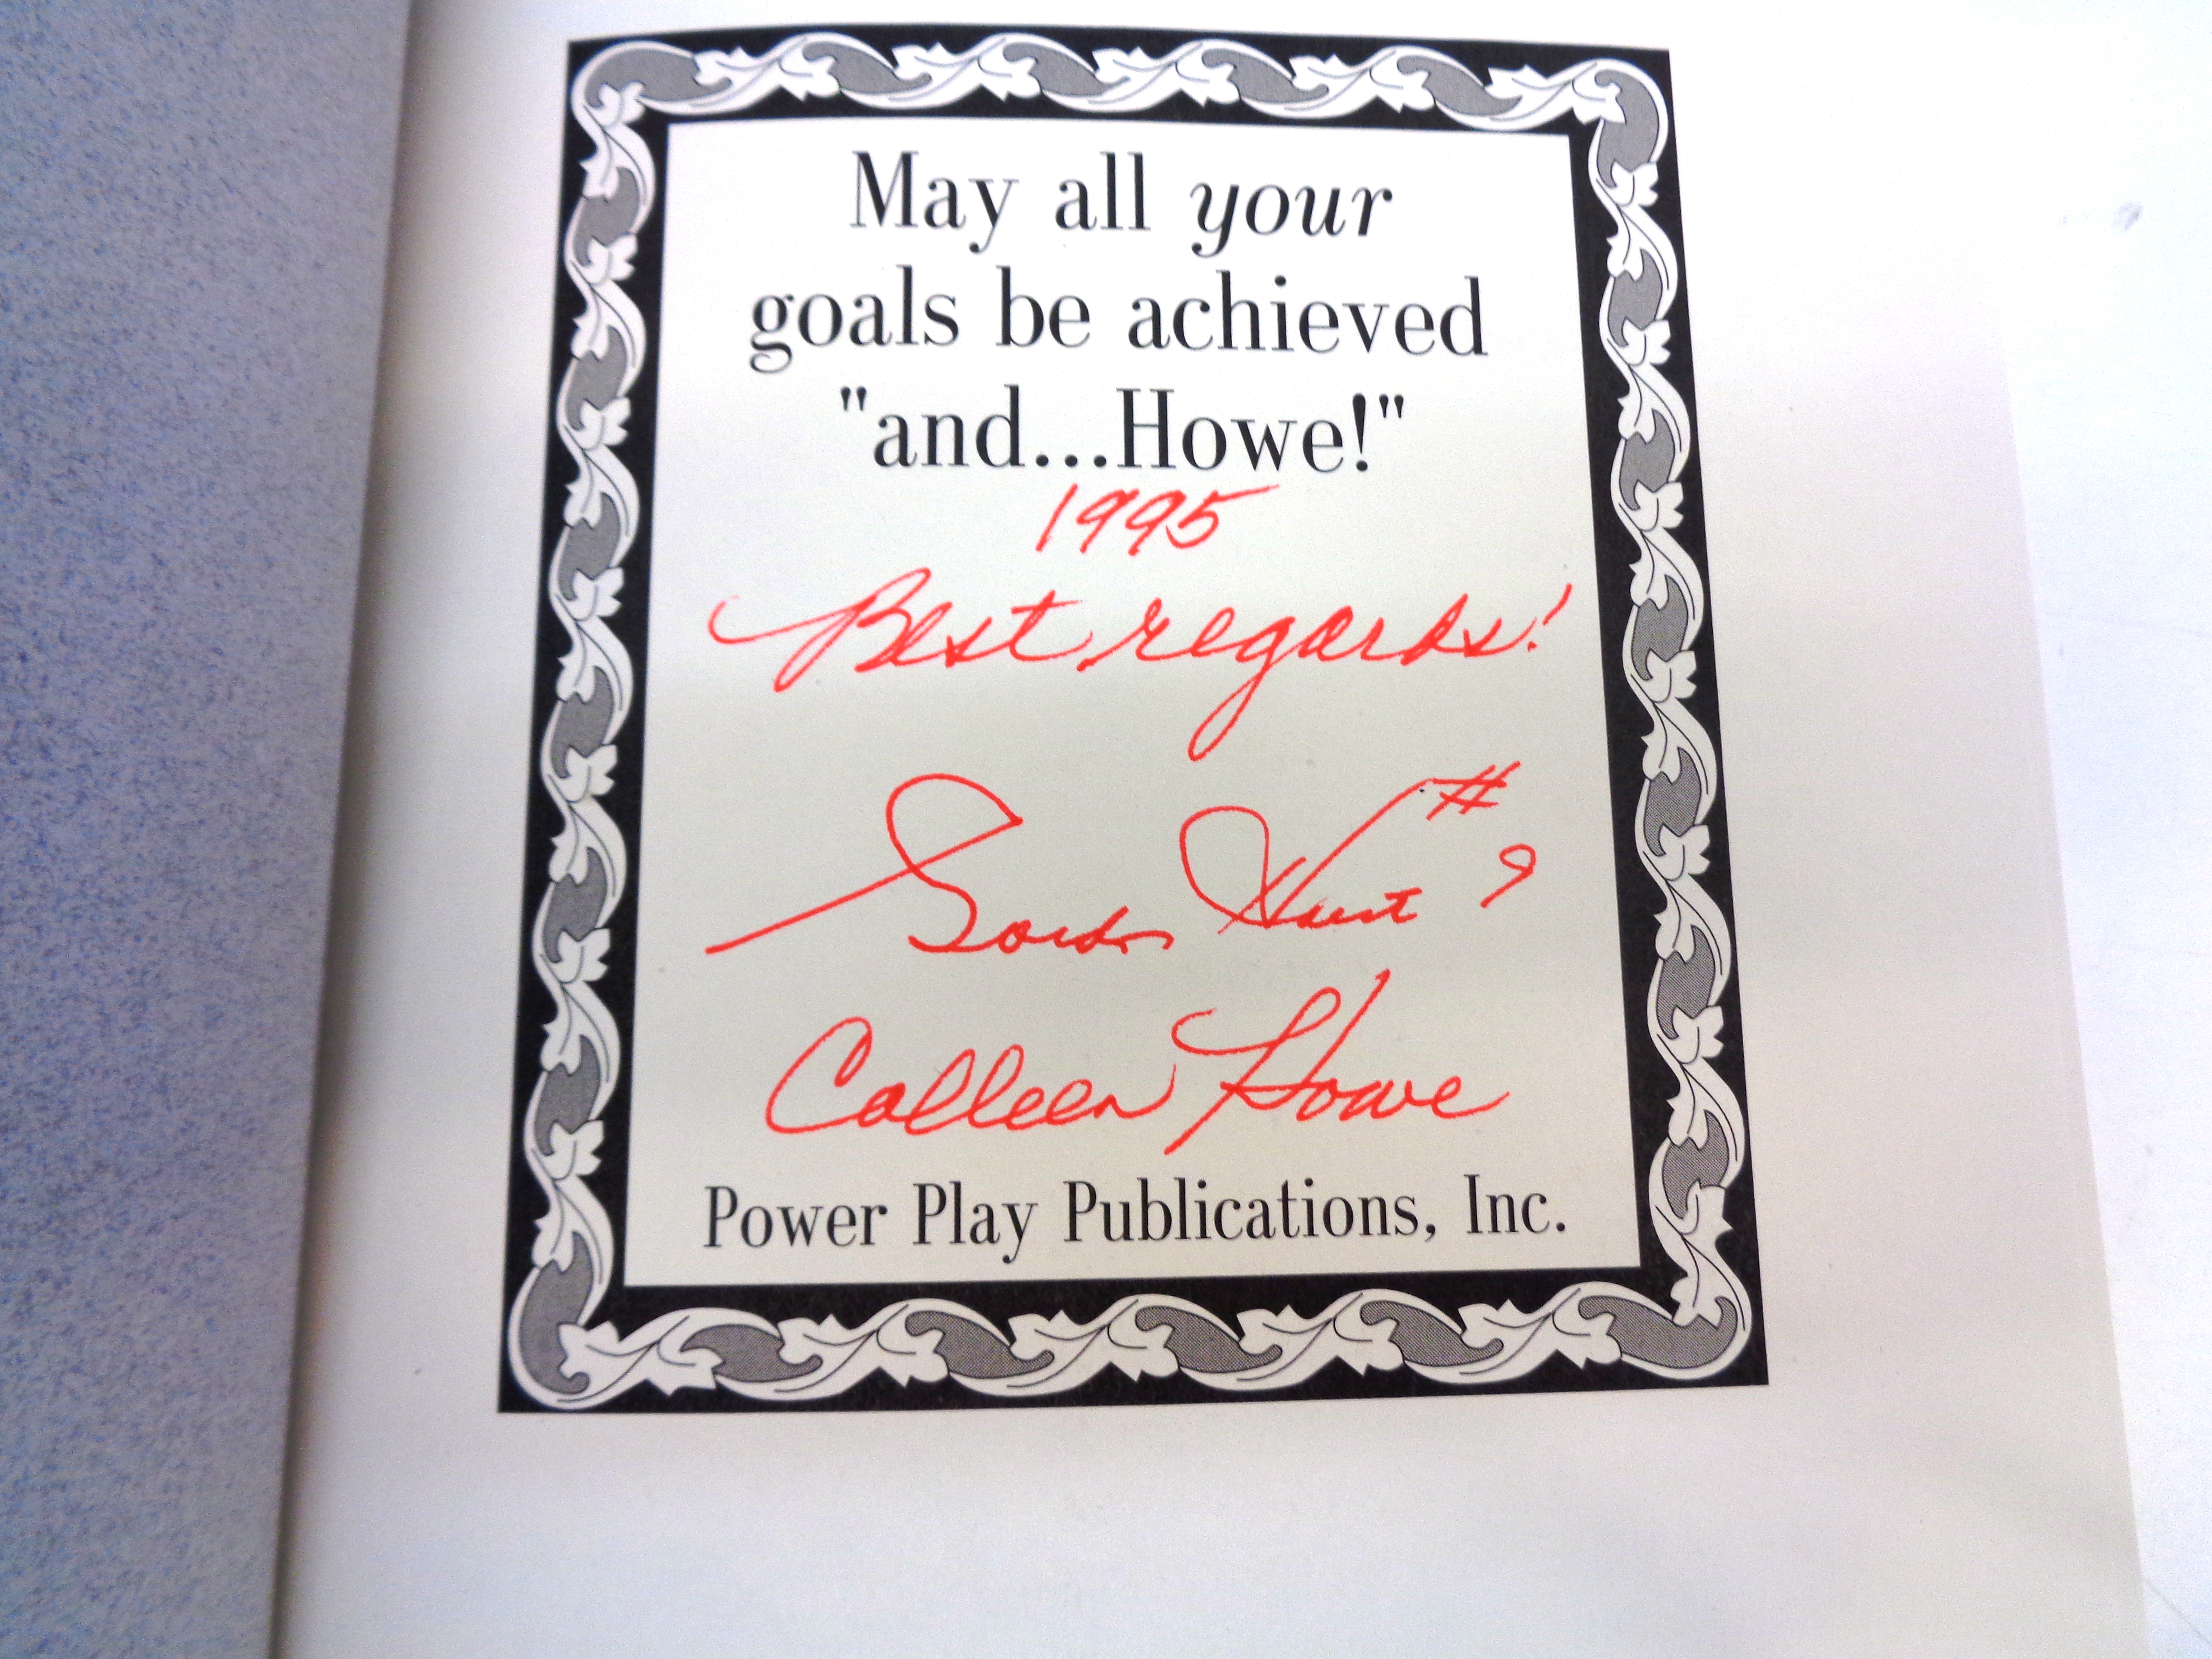 May all your
goals be achieved
"and...Howe!"
1995
Best regards!
Gordon #
9
Colleen Howe
Power Play Publications, Inc.